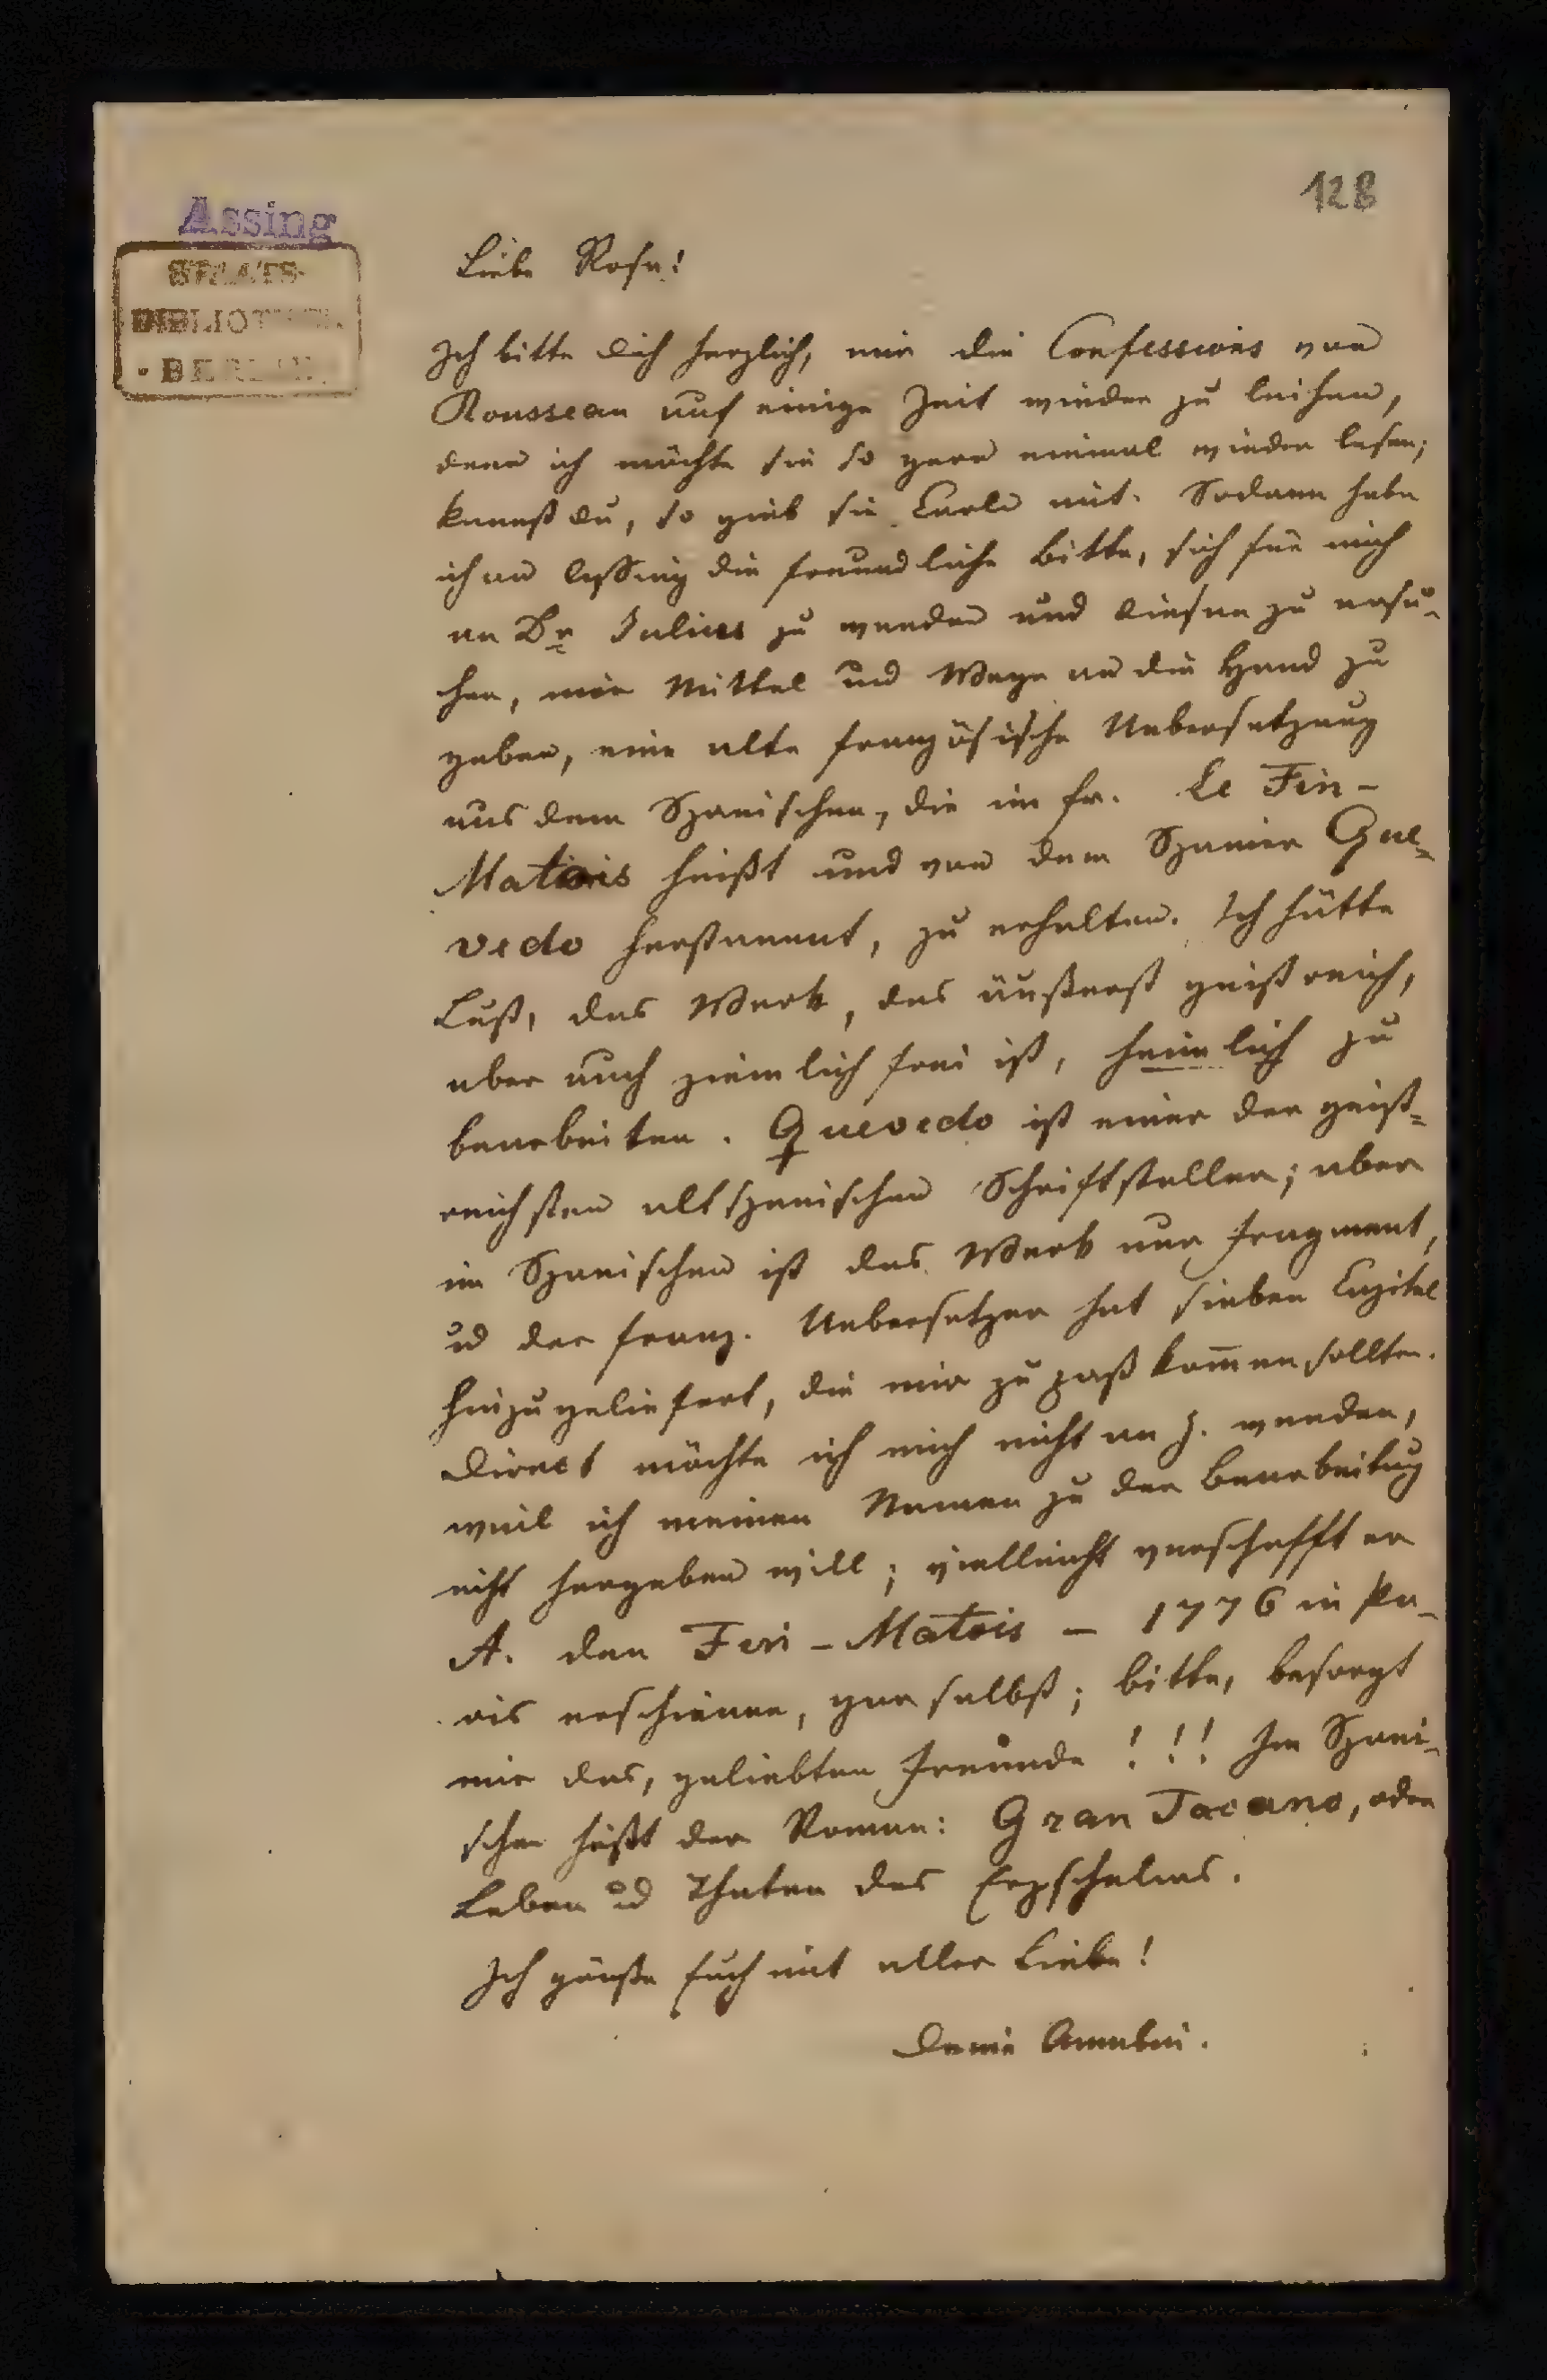 128
Assing
STAATS-
BIBLIOTHEK
• BERLIN •
Liebe Rosa!
Ich bitte Dich herzlich, mir die Confessions von
Rousseau auf einige Zeit wieder zu leihen,
denn ich möchte sie so gern einmal wieder lesen;
kannst Du, so gieb sie Carln mit. Sodann habe
ich an Assing die freundliche Bitte, sich für mich
an Dr Julius zu wenden und diesen zu ersu-
chen, mir Mittel und Wege an die Hand zu
geben, eine alte französische Uebersetzung
aus dem Spanischen, die im fr. Le Fin-
Matois heißt und von dem Spanier Que-
vedo herstammt, zu erhalten. Ich hätte
Lust, das Werk, das äußerst geistreich,
aber auch ziemlich frei ist, heimlich zu
bearbeiten. Quevedo ist einer der geist-
reichsten altspanischen Schriftsteller; aber
im Spanischen ist das Werk nur Fragment,
ud der franz. Uebersetzer hat sieben Capitel
hinzugeliefert, die mir zu paß kommen sollten.
Direct möchte ich mich nicht an J. wenden,
weil ich meinen Namen zu der Bearbeitung
nicht hergeben will; vielleicht verschafft er
A. den Fin-Matois – 1776 in Pa-
ris erschienen, gar selbst; bitte, besorgt
mir das, geliebten Freunde!!! Im Spani-
schen heißt der Roman: Gran Tacano, oder
Leben ud Thaten des Erzschelms.
Ich grüße Euch mit aller Liebe!
Deine Amalie.